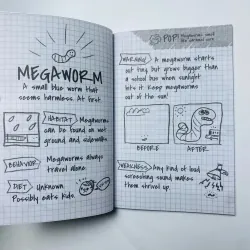 MEGAWORM
A small blue worm that
seems harmless. At first.
HABITAT: Megaworms
can be found on wet
ground and sidewalks.
BEHAVIOR: Megaworms always
travel alone.
DIET: Unknown.
Possibly eats kids.
POP!
Megaworms
WARNING: A megaworm starts
out tiny but grows bigger than
a school bus when sunlight
hits it. Keep megaworms
out of the sun!
BEFORE
AFTER
WEAKNESS: Any kind of loud
screeching sound makes
them shrivel up.